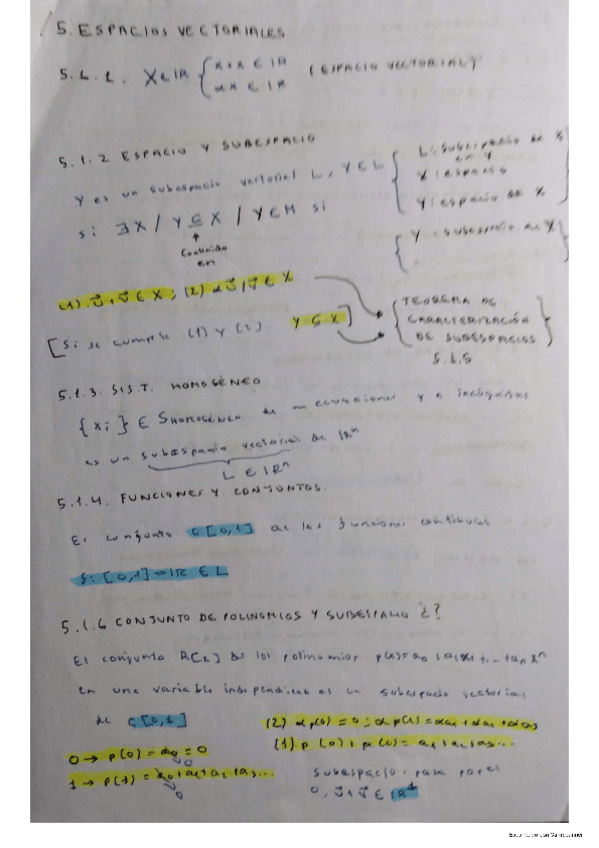 5. ESPACIOS VECTORIALES
5.1.1. X∈ℝ { x+x ∈ ℝ (ESPACIO VECTORIAL)
αx ∈ ℝ
5.1.2 ESPACIO Y SUBESPACIO
Y es un subespacio vectorial L, Y∈L { L: subespacio de X
en Y
X: espacio
Y: espacio de X }
si ∃X / Y ⊆ X / Y∈M si
{ Y: subespacio de X }
↑
Contenido
en
(1) ; (2) ∈ X
[Si se cumple (1) y (2) Y ⊆ X]
{ TEOREMA DE
CARACTERIZACIÓN
DE SUBESPACIOS }
5.1.5
5.1.3. SIST. HOMOGÉNEO
{xi} ∈ SHOMOGÉNEO de m ecuaciones y n incógnitas
es un subespacio vectorial de ℝⁿ
L ∈ ℝⁿ
5.1.4. FUNCIONES Y CONJUNTOS.
El conjunto C[0,1] de las funciones continuas
f: [0,1]→ℝ ∈ L
5.1.6 CONJUNTO DE POLINOMIOS Y SUBESPACIO ¿?
El conjunto R[x] de los polinomios
en una variable independiente es un subespacio vectorial
de C[0,1]
(2) αp(0) = 0 ; αp(1) =
(1) p(0)+p(0) =
0 → p(0) = a0 = 0
1 → p(1) =
subespacio. pasa por el
0, ∈